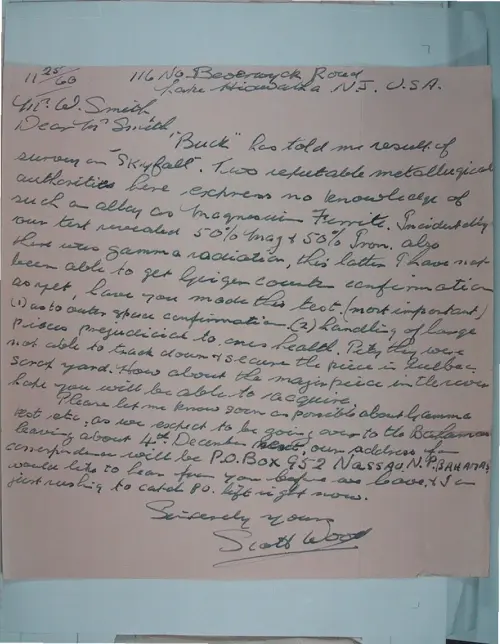 11 25/60 116 No. Beverwyck Road
Lake Hiawatha N.J. U.S.A.
Mr. W. Smith
Dear Mr Smith
"Buck" has told me result of
survey on "Skyfall". Two reputable metallurgical
authorities here express no knowledge of
such an alloy as Magnesium Ferrite. Incidentally
our test revealed 50% Mag & 50% Iron. also
there was gamma radiation, this latter I have not
been able to get Geiger counter confirmation
as yet, have you made this test. (most important)
(1) as to outer space confirmation. (2) handling of large
pieces prejudicial to ones health. Pity they were
not able to track down & secure the piece in Quebec
scrap yard. How about the major piece in the river
hope you will be able to acquire.
Please let me know soon as possible about Gamma
test etc. as we expect to be going over to the Bahamas
leaving about 4th. December our address for
correspondence will be P.O. Box 952 Nassau. N.P. BAHAMAS
would like to hear from you before we leave. & I'm
just rushing to catch P.O. lift right now.
Sincerely yours
Scott Wood